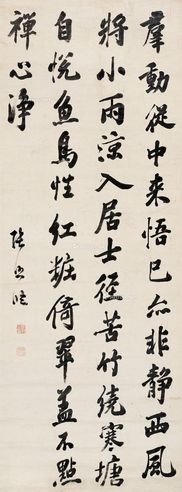 羣動從中来悟已亦非静西風
將小雨涼入居士徑苦竹繞寒塘
自悦魚鳥性紅粧倚翠蓋不點
禪心淨
張之洞